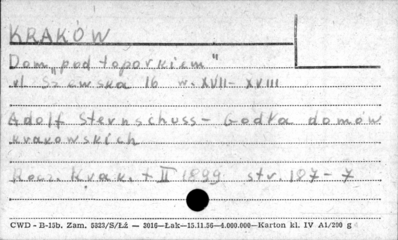 KRAKÓW
Dom „pod toporkiem"
ul. Szewska 16 w. XVII - XVIII
Adolf Sternschuss - Godła domów
krakowskich
Rocz. Krak. t II 1899 str. 107-7
CWD - B-13b. Zam. 5823/S/Łż — 2016—Łak—15.11.56—4.000.000—Karton kl. IV A1/200 g